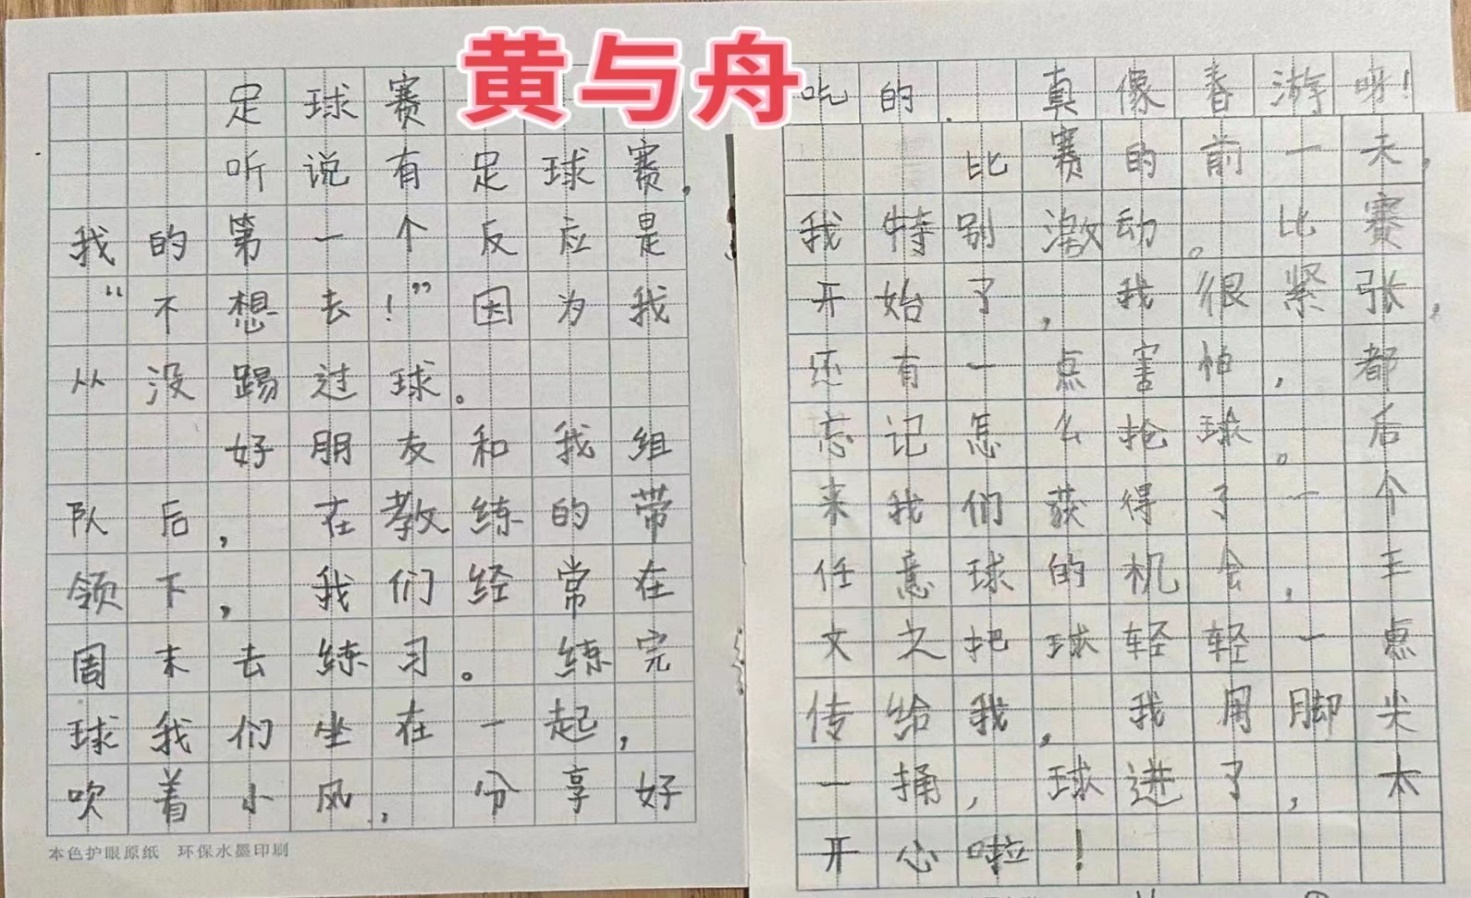 黄与舟
足球赛
听说有足球赛，
我的第一个反应是
“不想去！”因为我
从没踢过球。
好朋友和我组
队后，在教练的带
领下，我们经常在
周末去练习。练完
球我们坐在一起，
吹着小风，分享好
本色护眼原纸 环保水墨印刷
吃的．真像春游呀！
比赛的前一天，
我特别激动。比赛
开始了，我很紧张，
还有一点害怕，都
忘记怎么抢球。后
来我们获得了一个
任意球的机会，王
文之把球轻轻一点
传给我，我用脚尖
一捅，球进了，太
开心啦！